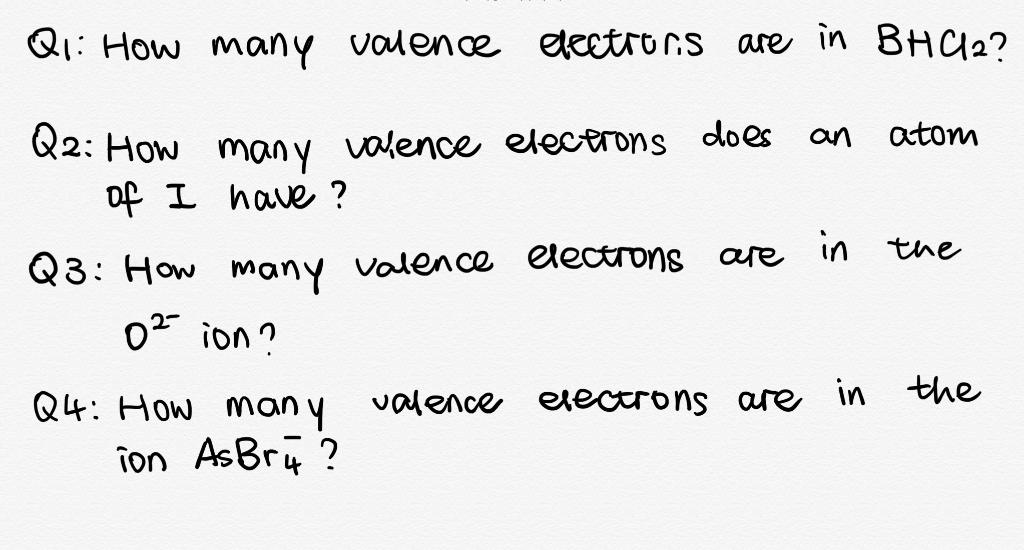 Q1: How many valence electrons are in BHCl₂?
Q2: How many valence electrons does an atom
of I have?
Q3: How many valence electrons are in the
O²⁻ ion?
Q4: How many valence electrons are in the
ion AsBr₄⁻?